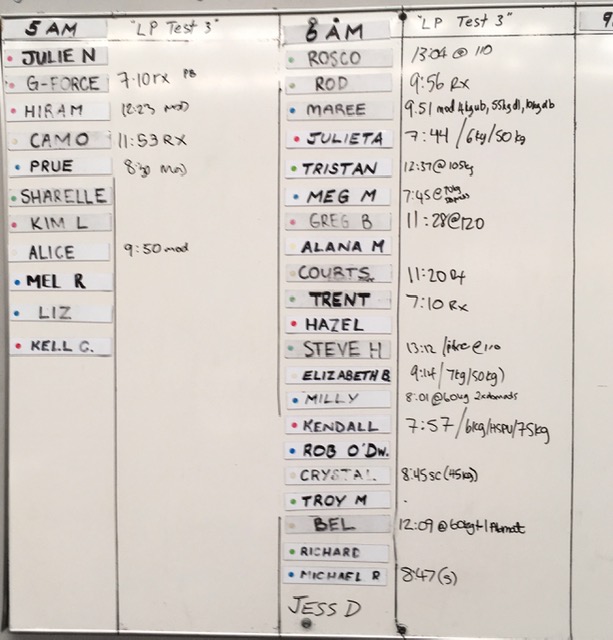 5 AM "LP Test 3"
JULIE N
G-FORCE 7:10 rx PB
HIRAM 12:23 mod
CAMO 11:53 RX
PRUE 8:30 mod
SHARELLE
KIM L
ALICE 9:50 mod
MEL R
LIZ
KELL C.
6 AM "LP Test 3"
ROSCO 13:04 @ 110
ROD 9:56 Rx
MAREE 9:51 mod 55kg dl, 10kg db
JULIETA 7:44 / 6kg / 50 kg
TRISTAN 12:37 @ 105kg
MEG M 7:45 @ 70kg
GREG B 11:28 @ 120
ALANA M
COURTS 11:20
TRENT 7:10 Rx
HAZEL
STEVE H 13:12 / @ 110
ELIZABETH B 9:14 / 7kg / 50kg)
MILLY 8:01 @ 60kg
KENDALL 7:57 / 6kg / HSPU / 75kg
ROB O'DW.
CRYSTAL 8:45 sc (45kg)
TROY M
BEL 12:09 @ 60kg + 1 Abmat
RICHARD
MICHAEL R 8:47 (s)
JESS D
9